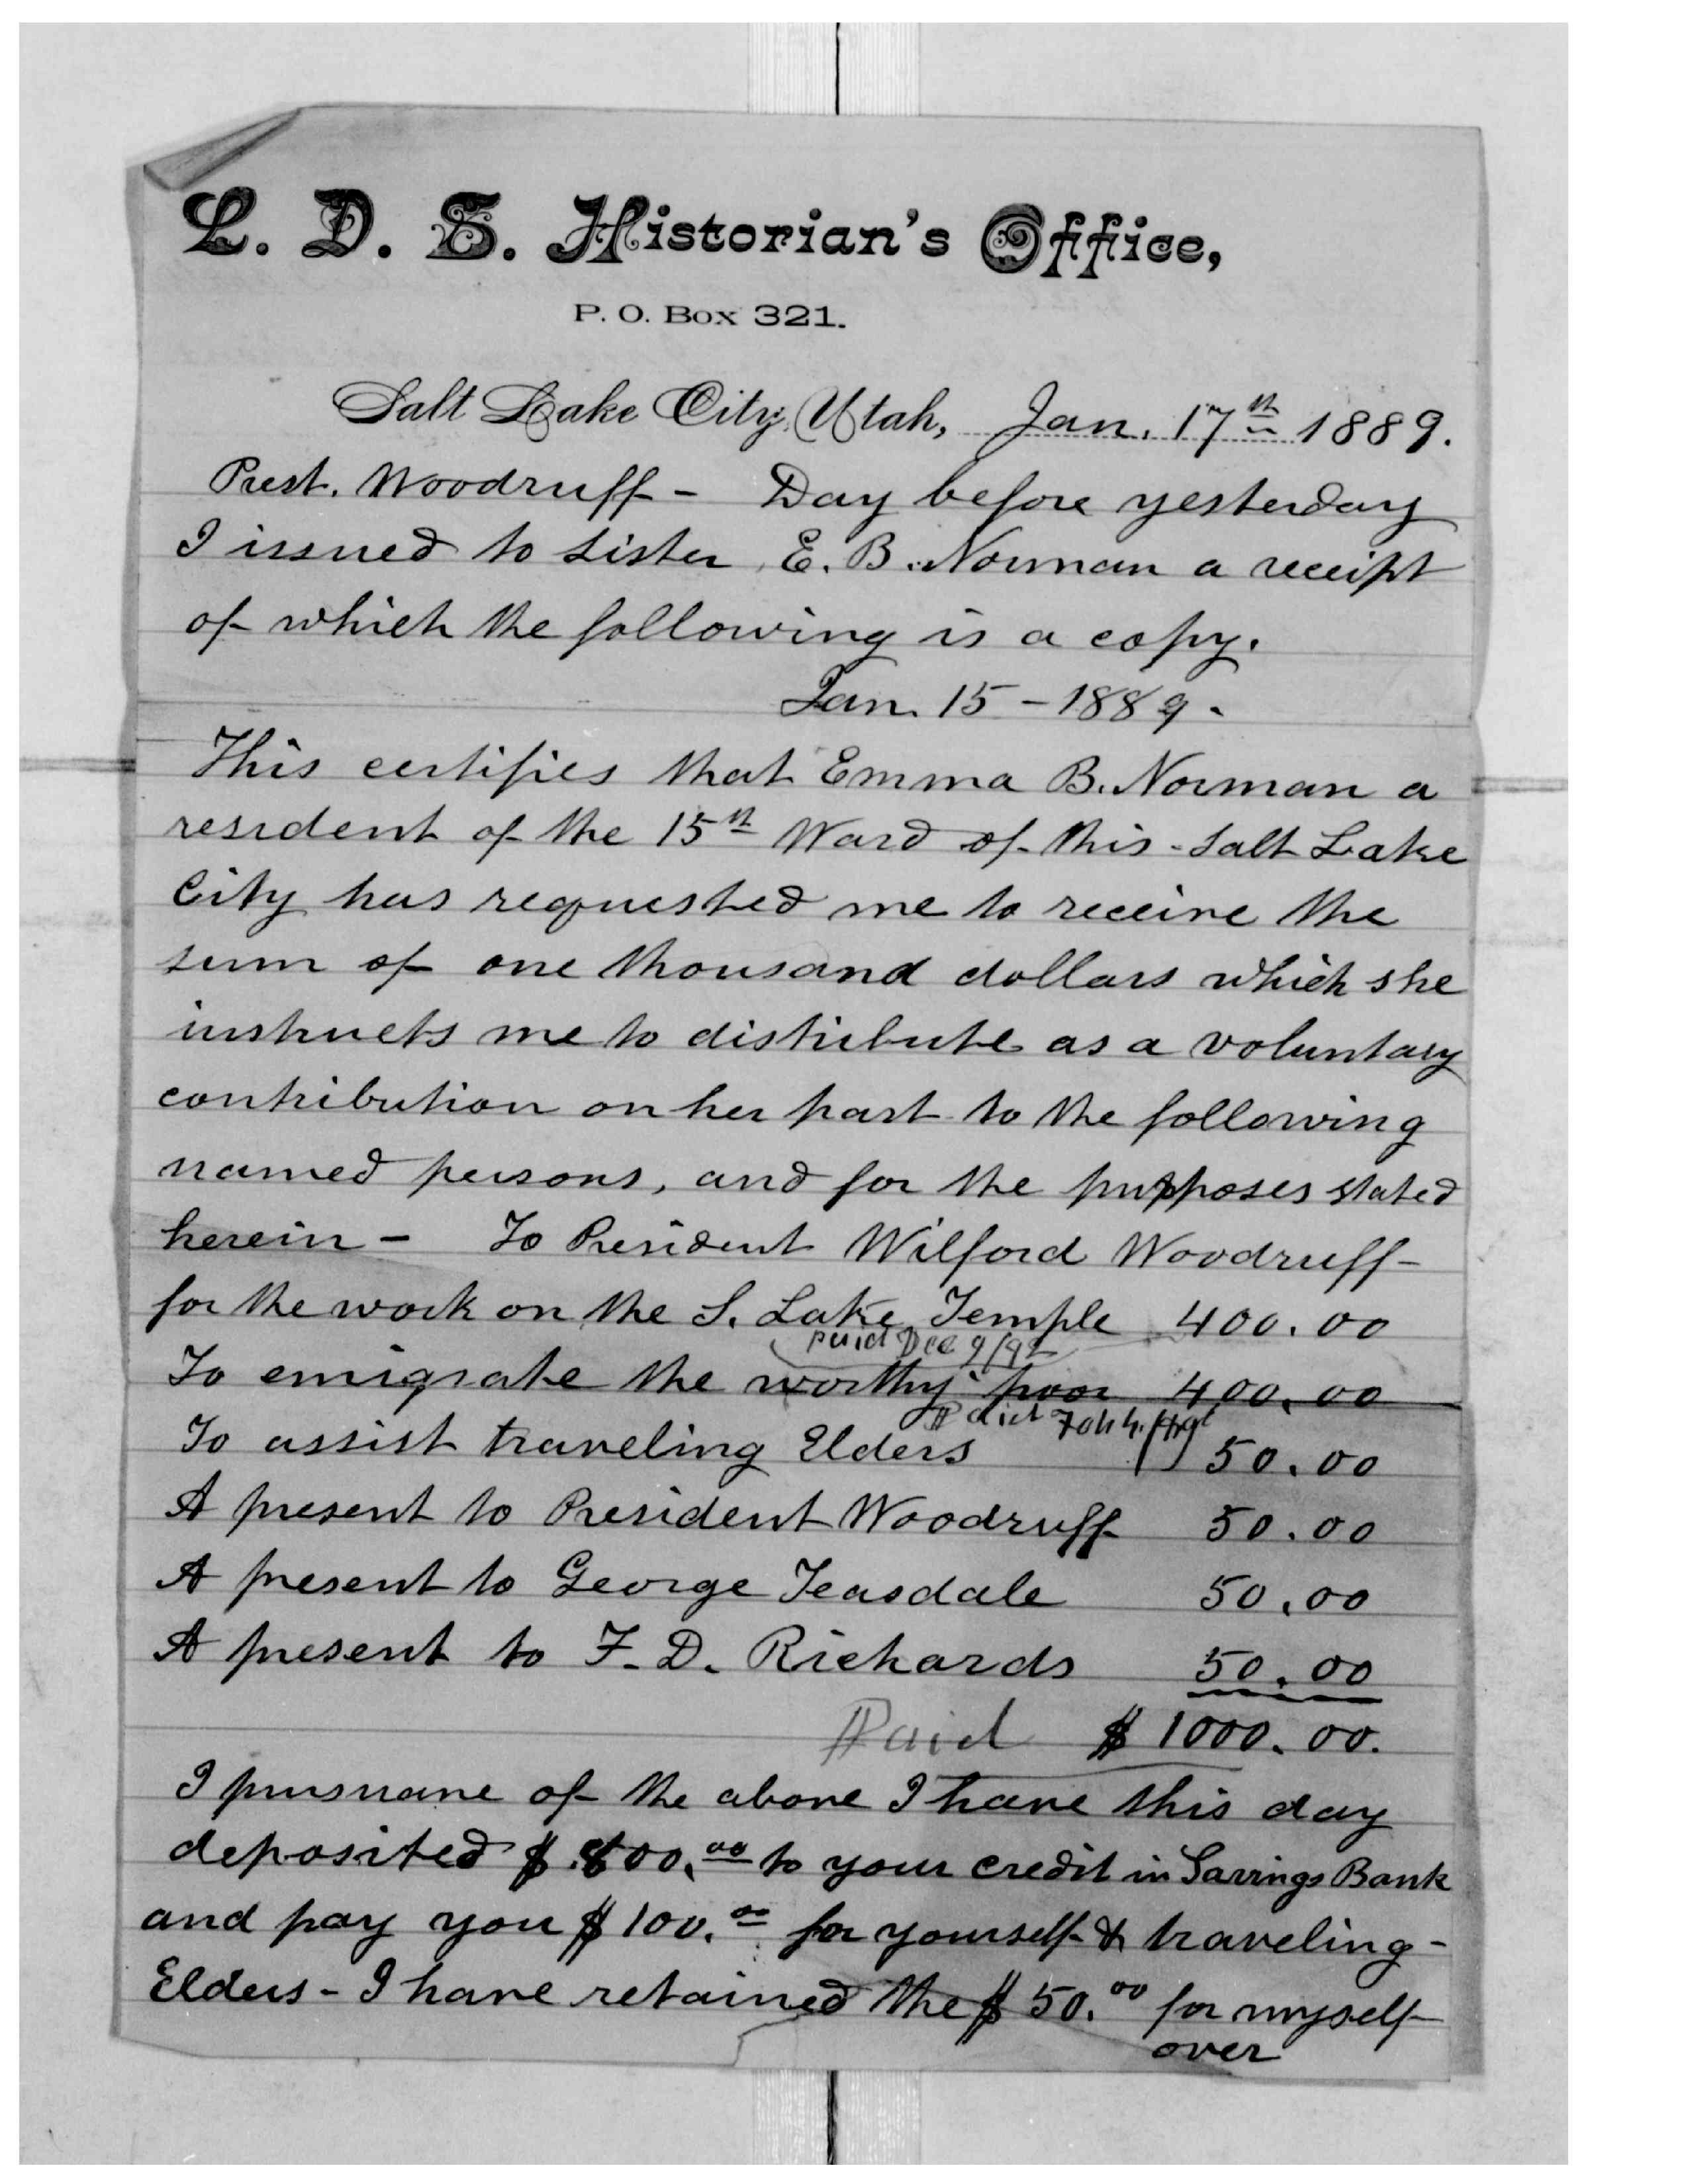 L. D. S. Historian's Office,
P. O. Box 321.
Salt Lake City, Utah, Jan. 17th 1889.
Prest. Woodruff - Day before yesterday
I issued to Sister E. B. Norman a receipt
of which the following is a copy.
Jan. 15 - 1889.
This certifies that Emma B. Norman a
resident of the 15th Ward of this - Salt Lake
City has requested me to receive the
sum of one thousand dollars which she
instructs me to distribute as a voluntary
contribution on her part to the following
named persons, and for the purposes stated
herein - To President Wilford Woodruff -
for the work on the S. Lake Temple 400.00
paid Dec 9/92
To emigrate the worthy poor 400.00
Paid
To assist traveling Elders 50.00
A present to President Woodruff 50.00
A present to George Teasdale 50.00
A present to F. D. Richards 50.00
Paid $1000.00.
I pursuane of the above I have this day
deposited $800.00 to your credit in Savings Bank
and pay you $100.00 for yourself & traveling -
Elders - I have retained the $50.00 for myself
over